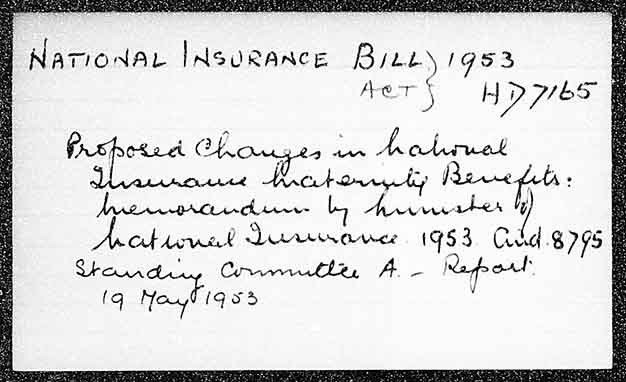 NATIONAL INSURANCE BILL } 1953
ACT } HD7165
Proposed Changes in National
Insurance Maternity Benefits:
Memorandum by Minister of
National Insurance. 1953 Cmd. 8795
Standing Committee A. - Report.
19 May 1953